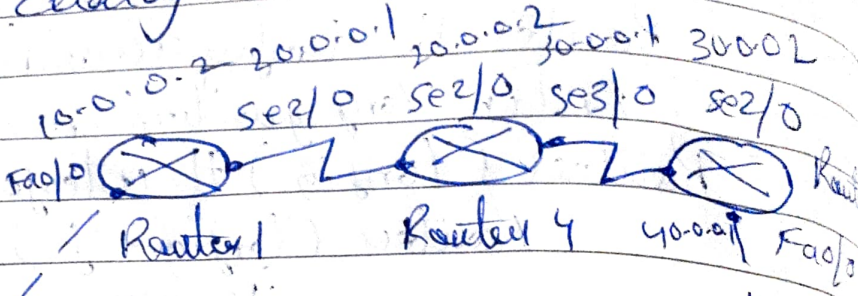 10.0.0.2 20.0.0.1 20.0.0.2 30.0.0.1 30.0.0.2
Se2/0 Se2/0 Se3/0 Se2/0
Fa0/0
Router 1 Router 4 40.0.0.1 Fa0/0